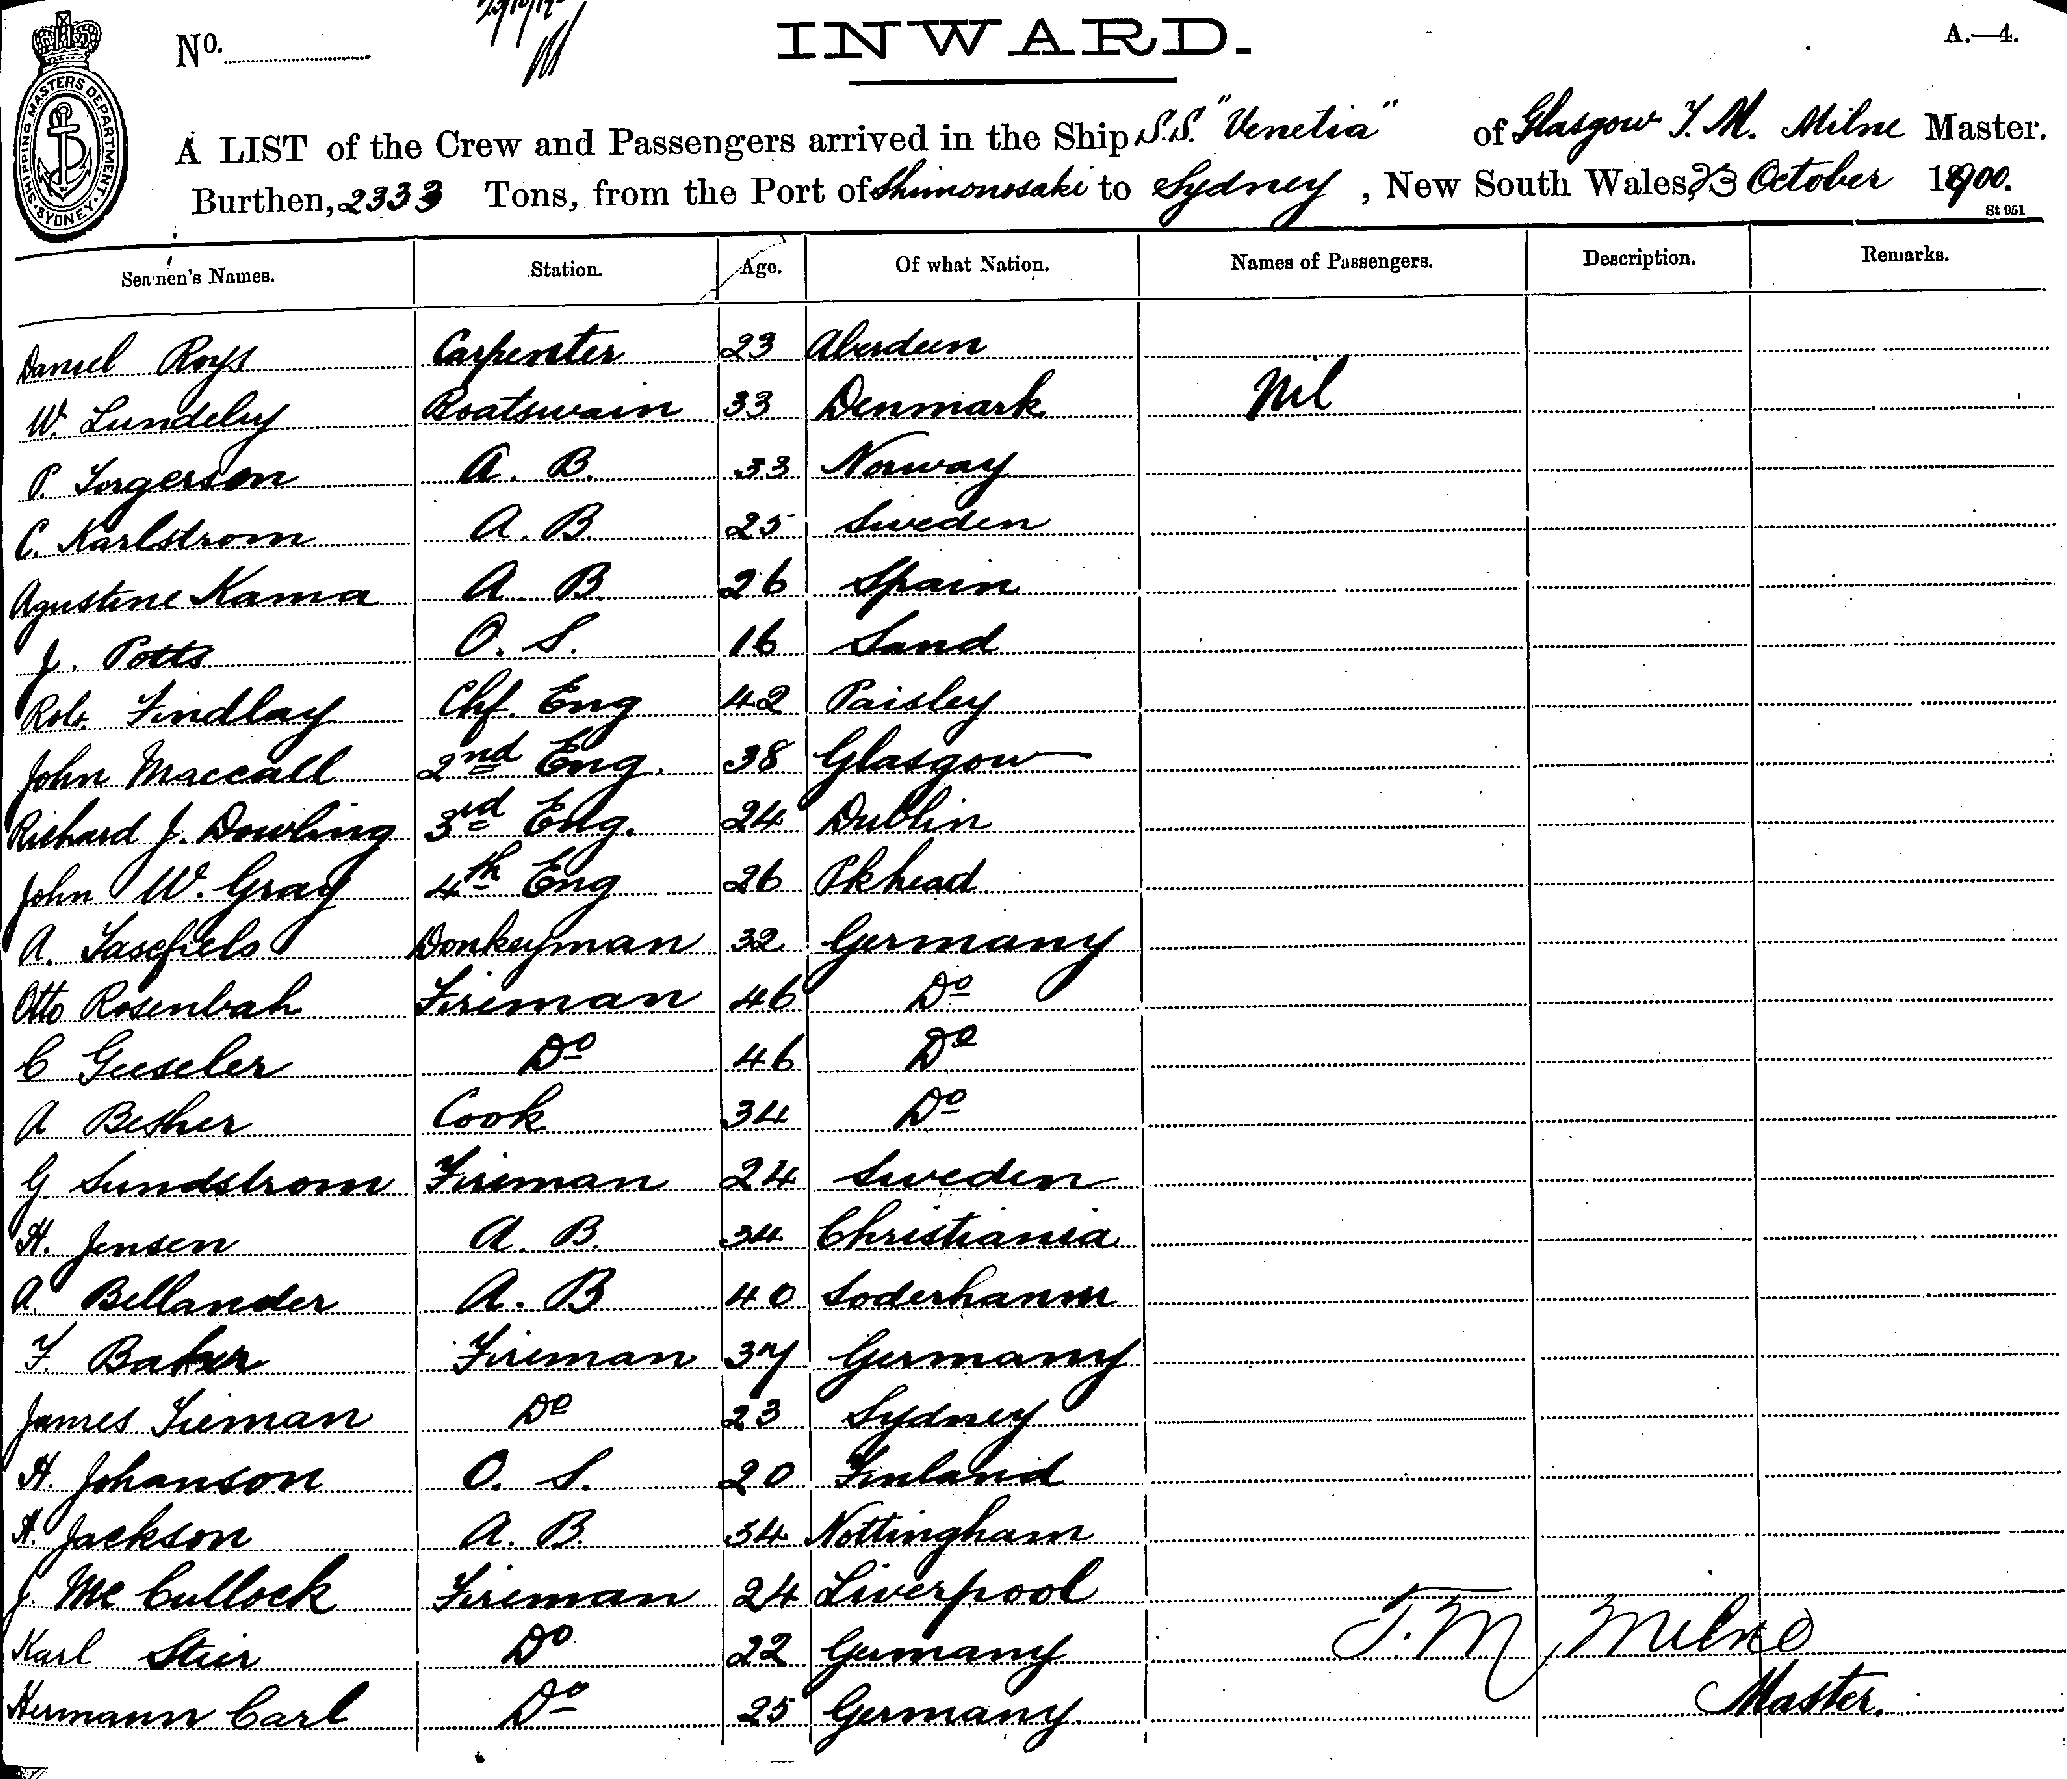 No.
INWARD.
A.—4.
SHIPPING MASTERS DEPARTMENT SYDNEY
A LIST of the Crew and Passengers arrived in the Ship S.S. "Venetia" of Glasgow T. M. Milne Master.
Burthen, 2333 Tons, from the Port of Shimonosaki to Sydney, New South Wales, 23 October 1900.
St 951
Seamen's Names. Station. Age. Of what Nation. Names of Passengers. Description. Remarks.
Daniel Roys Carpenter 23 Aberdeen
W. Lundeby Boatswain 33 Denmark Nil
P. Torgerson A. B. 33 Norway
C. Karlstrom A. B. 25 Sweden
Agustine Kama A. B. 26 Spain
J. Potts O. S. 16 Sand
Robt. Findlay Chf. Eng 42 Paisley
John Maccall 2nd Eng. 38 Glasgow
Richard J. Dowling 3rd Eng. 24 Dublin
John W. Gray 4th Eng 26 Pkhead
A. Donkeyman 32 Germany
Otto Rosenbah Fireman 46 Do
C Gueseler Do 46 Do
A Besher Cook 34 Do
G Sundstrom Fireman 24 Sweden
H. Jensen A. B. 34 Christiania
A. Bellander A. B 40 Soderhamm
F. Baker Fireman 37 Germany
James Tieman Do 23 Sydney
H. Johanson O. S. 20 Finland
H. Jackson A. B. 34 Nottingham
J. McCullock Fireman 24 Liverpool
Karl Stier Do 22 Germany T. M. Milne
Hermann Carl Do 25 Germany Master.